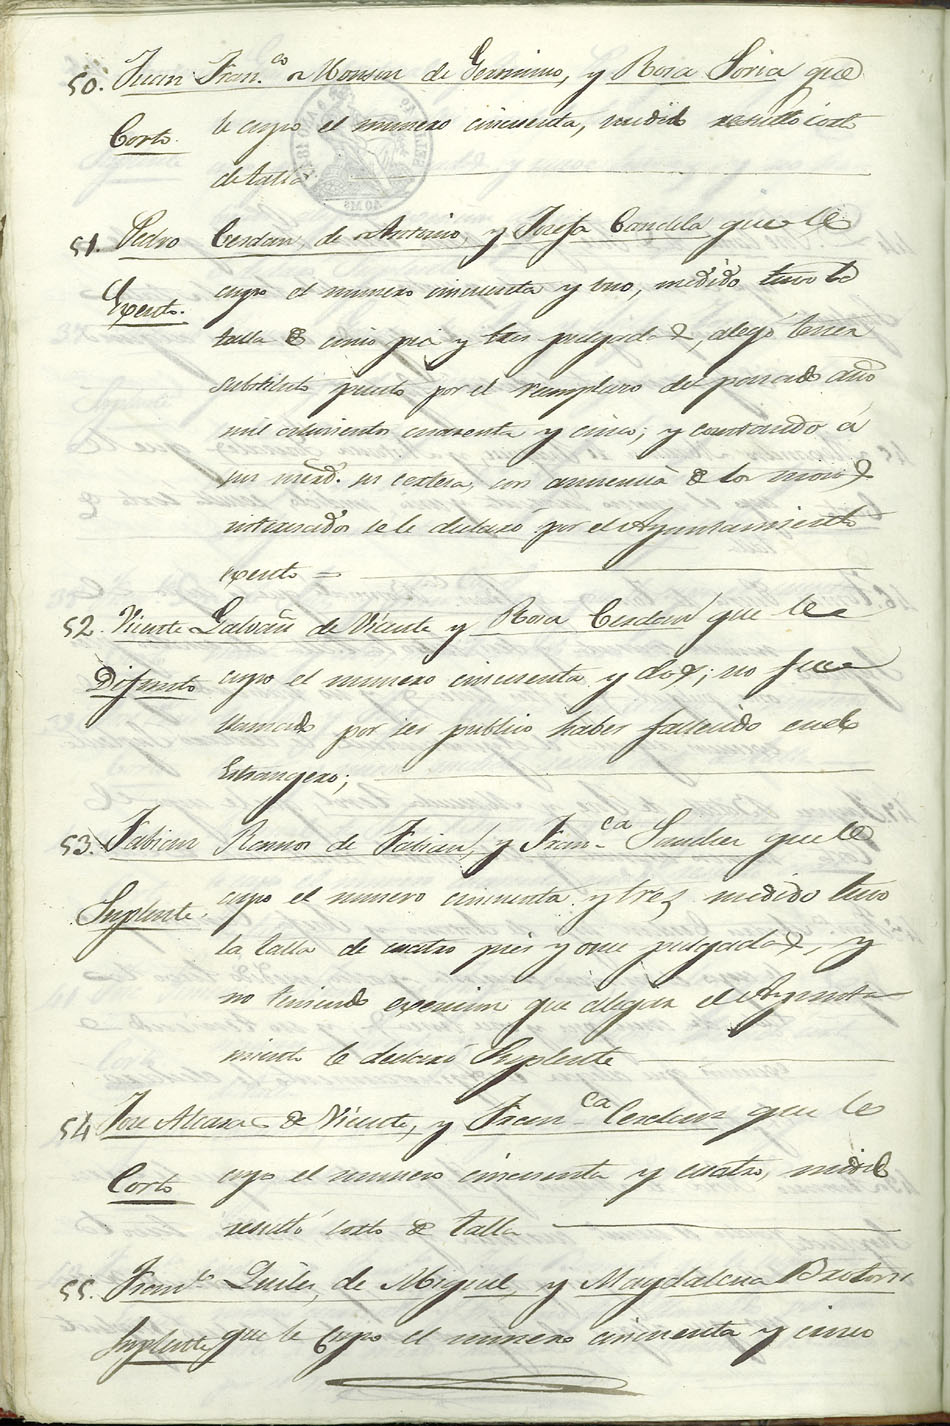 50. Juan Fran.co Monzon de Geronimo, y Rosa Soria que
Corto. le cupo el numero cincuenta, medido resultó corto
de talla
51. Pedro Cerdan de Antonio, y Josefa Candela que le
Exento. cupo el numero cincuenta y uno, medido tuvo la
talla de cinco pies y tres pulgadas, alegó tener
substituto puesto por el reemplazo del pasado año
mil ochocientos cuarenta y cinco; y constando á
sus merd. su certeza, con anuencia de los mozos
interesados se le declaró por el Ayuntamiento
exento =
52. Vicente Galvañ de Vicente y Rosa Cerdan que le
Difunto cupo el numero cincuenta y dos; no fue
llamado por ser publico haber fallecido en el
Estrangero;
53. Fabian Ramos de Fabian, y Fran.ca Sanchez que le
Suplente. cupo el numero cincuenta y tres medido tuvo
la talla de cuatro pies y once pulgadas, y
no teniendo exencion que alegar el Ayunta
miento le declaró Suplente
54 Jose Alcaraz de Vicente, y Fran.ca Cerdan que le
Corto cupo el numero cincuenta y cuatro, medido
resultó corto de talla
55. Fran.co Quiles, de Miguel, y Magdalena
Suplente que le cupo el numero cincuenta y cinco